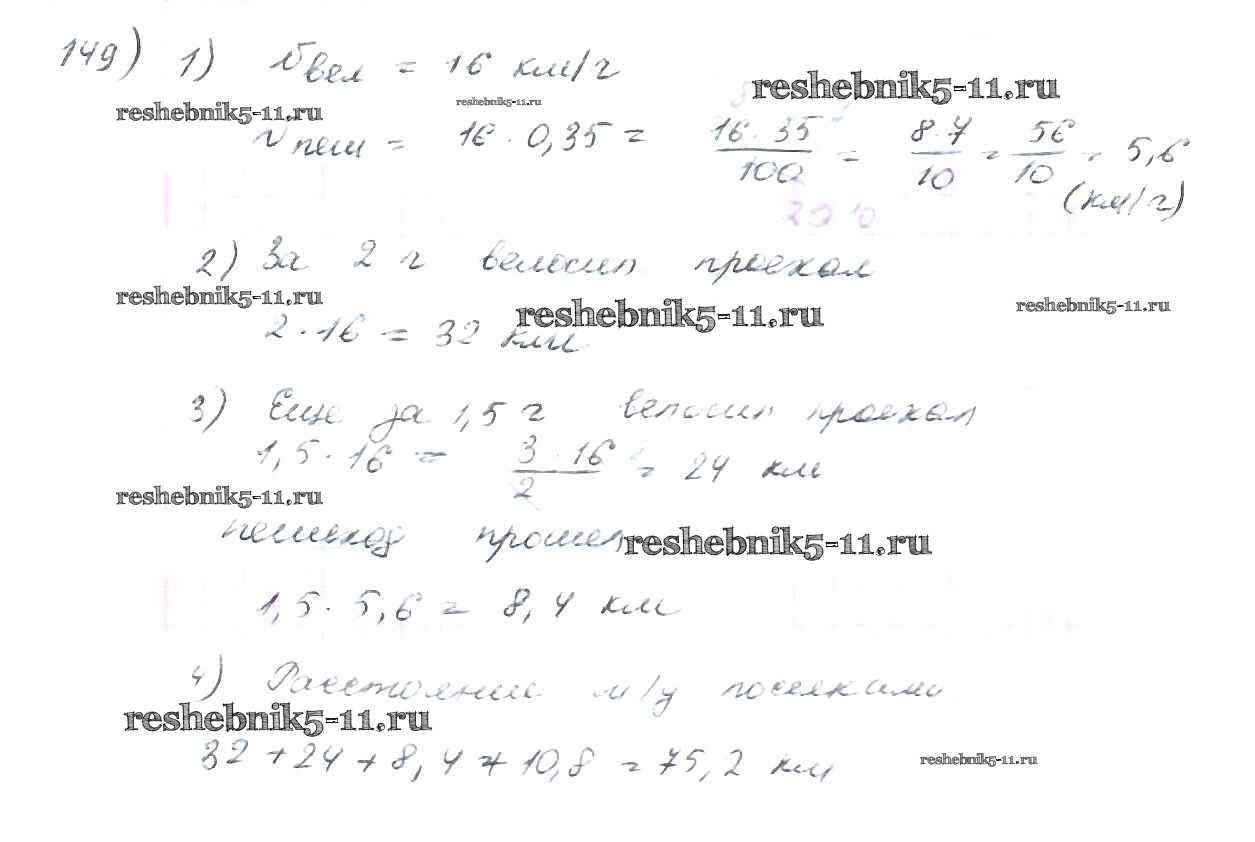 149) 1) Vвел = 16 км/ч
reshebnik5-11.ru reshebnik5-11.ru reshebnik5-11.ru
Vпеш = 16 · 0,35 = 16 · 35 / 100 = 8 · 7 / 10 = 56 / 10 = 5,6
(км/ч)
2) За 2 ч велосип проехал
reshebnik5-11.ru reshebnik5-11.ru reshebnik5-11.ru
2 · 16 = 32 км.
3) Еще за 1,5 ч велосип проехал
1,5 · 16 = 3 · 16 / 2 = 24 км
reshebnik5-11.ru
пешеход прошел reshebnik5-11.ru
1,5 · 5,6 = 8,4 км
4) Расстояние м/у поселками
reshebnik5-11.ru
32 + 24 + 8,4 + 10,8 = 75,2 км
reshebnik5-11.ru